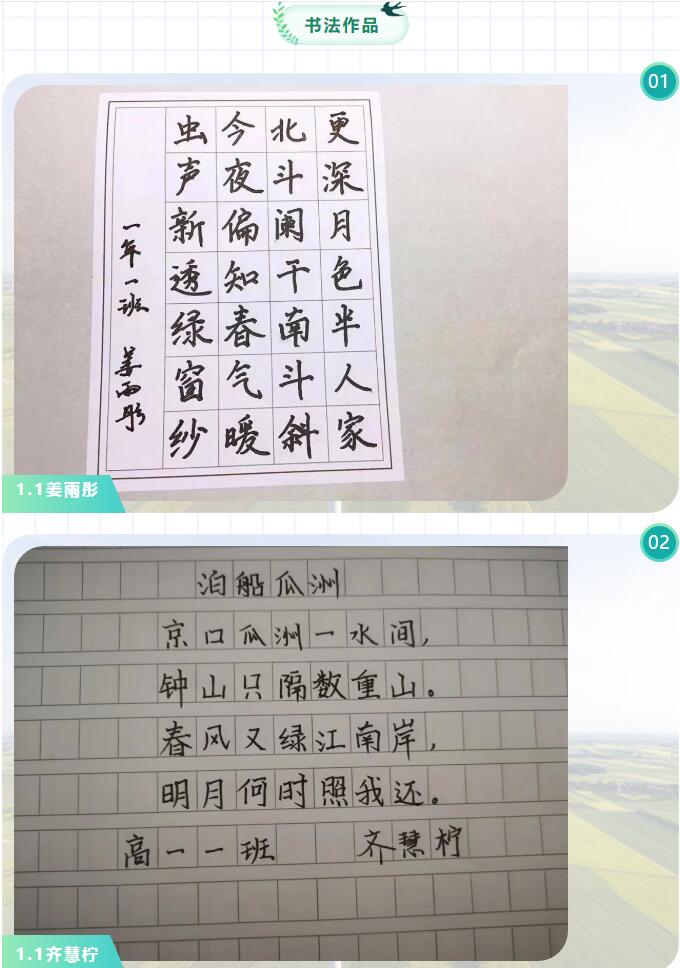 书法作品
01
更深月色半人家
北斗阑干南斗斜
今夜偏知春气暖
虫声新透绿窗纱
一年一班 姜雨彤
1.1姜雨彤
02
泊船瓜洲
京口瓜洲一水间，
钟山只隔数重山。
春风又绿江南岸，
明月何时照我还。
高一一班 齐慧柠
1.1齐慧柠